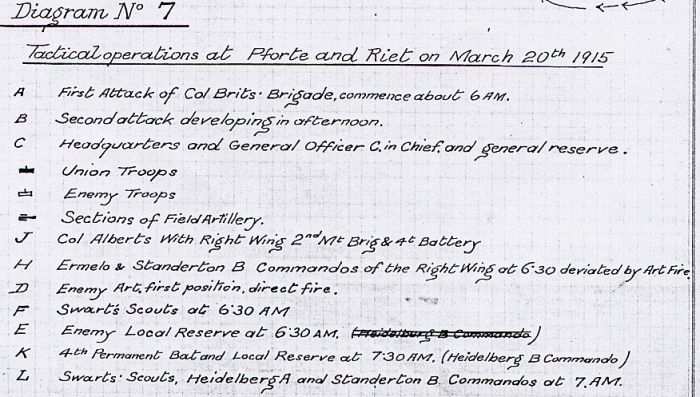 Diagram No 7
Tactical operations at Pforte and Riet on March 20th 1915
A First Attack of Col Brits' Brigade, commence about 6 AM.
B Second attack developing in afternoon.
C Headquarters and General Officer C. in Chief, and general reserve.
Union Troops
Enemy Troops
Sections of Field Artillery.
J Col Alberts With Right Wing 2nd Mt Brig & 4t Battery
H Ermelo & Standerton B Commandos of the Right Wing at 6·30 deviated by Art Fire
D Enemy Art, first position, direct fire.
F Swart's Scouts at 6·30 AM
E Enemy Local Reserve at 6·30 AM. (Heidelberg B Commando)
K 4th Permanent Bat and Local Reserve at 7·30 AM. (Heidelberg B Commando)
L Swarts' Scouts, Heidelberg A and Standerton B Commandos at 7. AM.